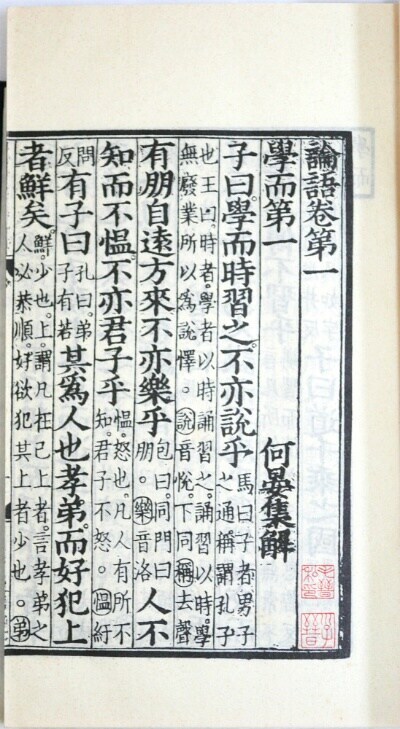 論語卷第一
學而第一 何晏集解
子曰。學而時習之。不亦說乎 馬曰子者男子之通稱謂孔子
也王曰。時者。學者以時誦習之。誦習以時。學無廢業所以為說懌。說音悅。下同。稱去聲
有朋自遠方來不亦樂乎 包曰。同門曰朋。樂音洛 人不
知而不慍。不亦君子乎 慍。怒也。凡人有所不知。君子不怒。慍紆
問反 有子曰 孔曰。弟子有若 其為人也孝弟。而好犯上
者鮮矣。鮮。少也。上。謂凡在己上者。言孝弟之人必恭順。好欲犯其上者少也。弟